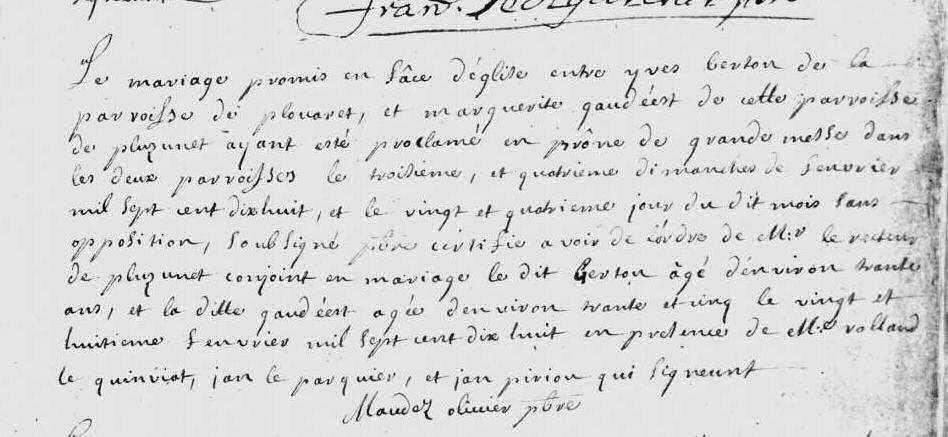 Le mariage promis en fâce d'église entre yves berton de la
parroisse de plouaret, et marguerite gaudéest de cette parroisse
de pluzunet ayant esté proclamé en prône de grande messe dans
les deux parroisses le troisieme, et quatrieme dimanches de fevrier
mil sept cent dixhuit, et le vingt et quatrieme jour du dit mois sans
opposition, soubsigné pbre certifie avoir de l'ordre de M:r le recteur
de pluzunet conjoint en mariage le dit berton âgé d'environ trante
ans, et la ditte gaudéest agée d'environ trante et cinq le vingt et
huitieme fevrier mil sept cent dix huit en presence de M:re rolland
le quiniat, jan le parquier, et jan pirion qui signeunt
Maudez olivier pbre